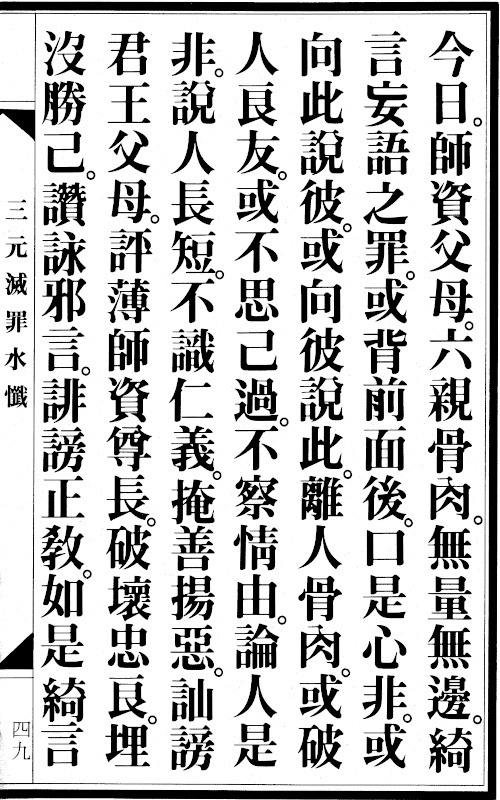 今日。師資父母。六親骨肉。無量無邊。綺
言妄語之罪。或背前面後。口是心非。或
向此說彼。或向彼說此。離人骨肉。或破
人良友。或不思己過。不察情由。論人是
非。說人長短。不識仁義。掩善揚惡。訕謗
君王父母。評薄師資尊長。破壞忠良。埋
沒勝己。讚詠邪言。誹謗正教。如是綺言
三元滅罪水懺
四九